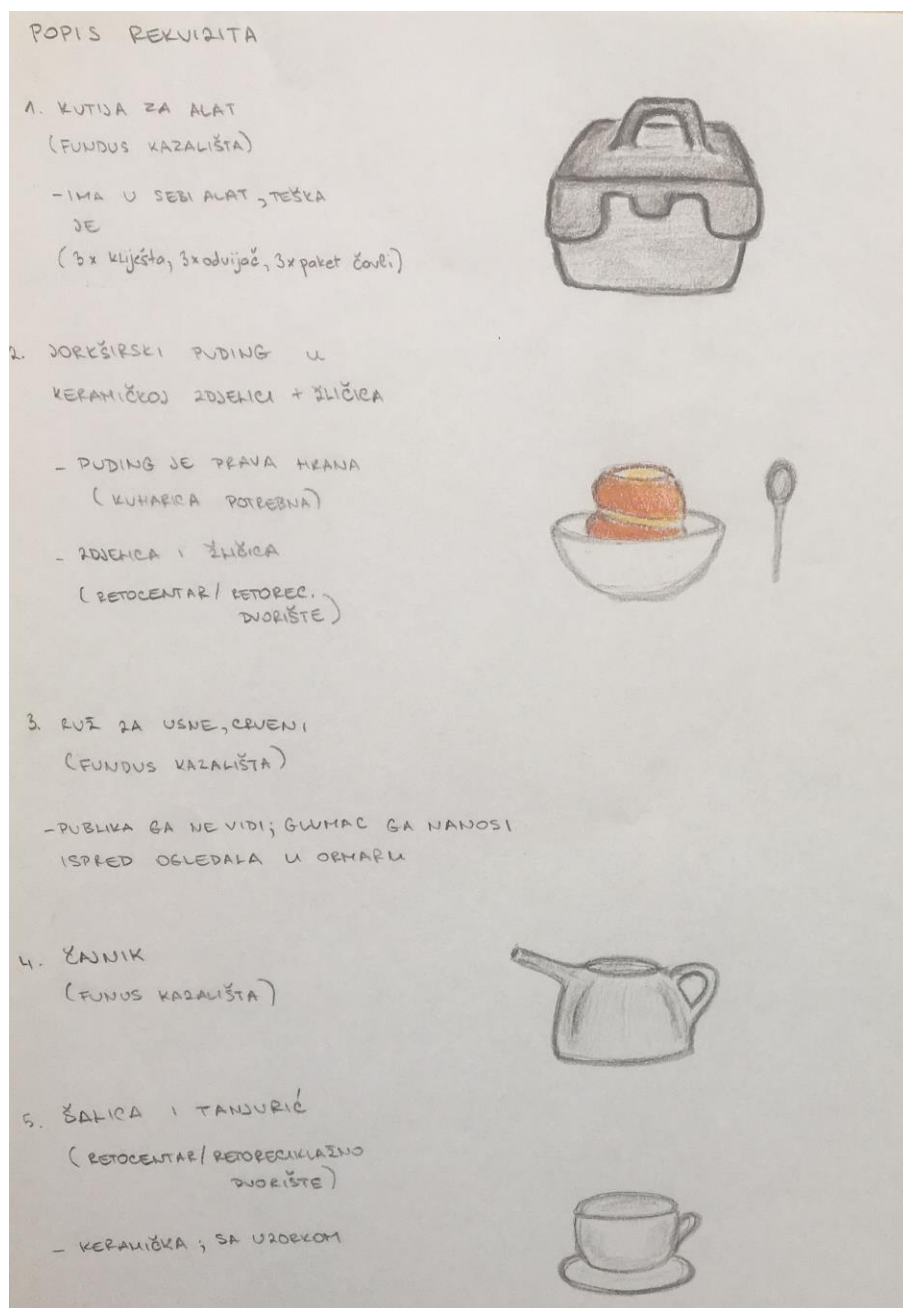 POPIS REKVIZITA
1. KUTIJA ZA ALAT
(FUNDUS KAZALIŠTA)
- IMA U SEBI ALAT, TEŠKA
JE
(3x kliješta, 3x odvijač, 3x paket čavli)
2. JORKŠIRSKI PUDING U
KERAMIČKOJ ZDJELICI + ŽLIČICA
- PUDING JE PRAVA HRANA
(KUHARICA POTREBNA)
- ZDJELICA I ŽLIČICA
(RETOCENTAR / RETOREC.
DVORIŠTE)
3. RUŽ ZA USNE, CRVENI
(FUNDUS KAZALIŠTA)
- PUBLIKA GA NE VIDI; GLUMAC GA NANOSI
ISPRED OGLEDALA U ORMARU
4. ČAJNIK
(FUNUS KAZALIŠTA)
5. ŠALICA I TANJURIĆ
(RETOCENTAR / RETORECIKLAŽNO
DVORIŠTE)
- KERAMIČKA; SA UZORKOM